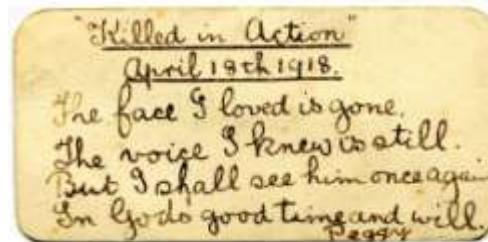 "Killed in Action"
April 18th 1918.
The face I loved is gone.
The voice I knew is still.
But I shall see him once again
In Gods good time and will.
Peggy